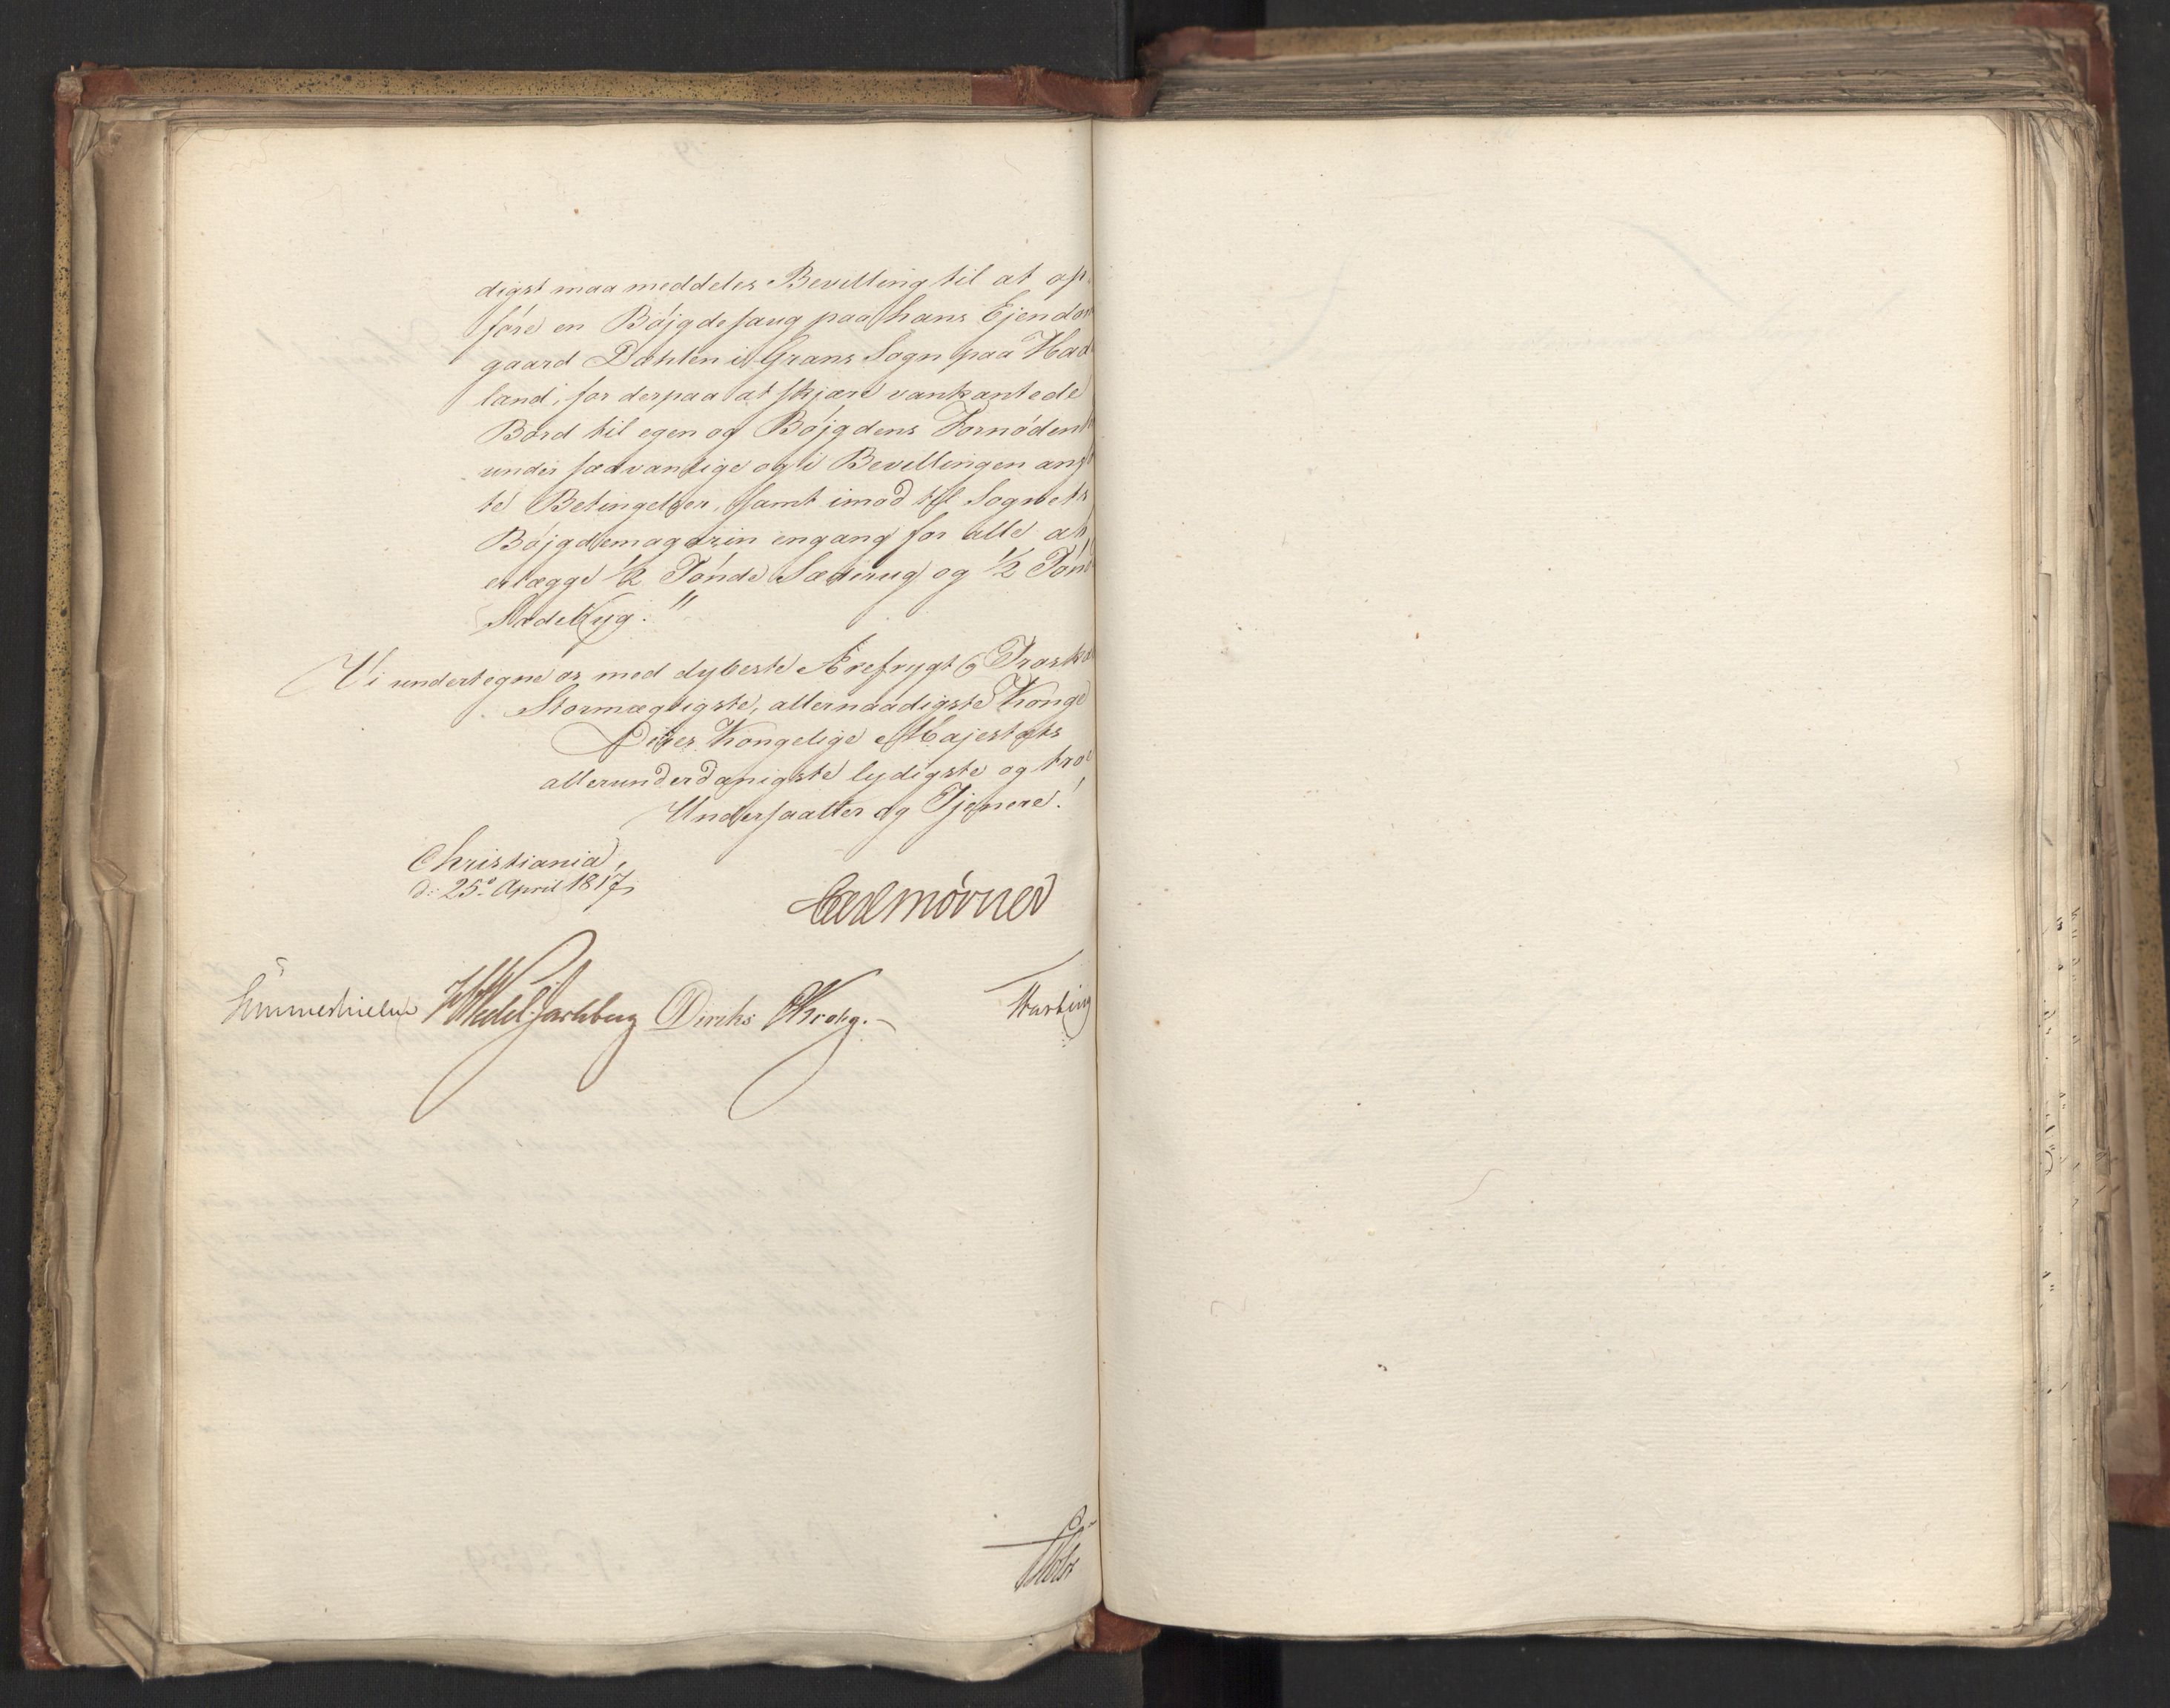 digst maa meddeles Bevilling til at op-
føre en Bøjgdesaug paa hans Ejendom
gaard Dæhlen i Grans Sogn paa Had
land, for derpaa at skjære vankantede
Bord til egen og Bøjgdens Fornøden
under sædvanlige og i Bevillingen anf
te Betingelser, samt imod til Sognets
Bøjgdemagazin engang for alle at
erlægge 1/2 Tønde Sæderug og 1/2 Tønd
Sædebyg."
Vi undertegne os med dybeste Ærefrygt og Troska
Stormægtigste, allernaadigste Konge
Deres Kongelige Majestæts
allerunderdanigste lydigste og tro
Undersaatter og Tjenere!
Christiania,
d: 25de April 1817,
Carl Mörner
Sommerhielm HWedel Jarlsberg Diriks CKrohg. Harbing
Holst